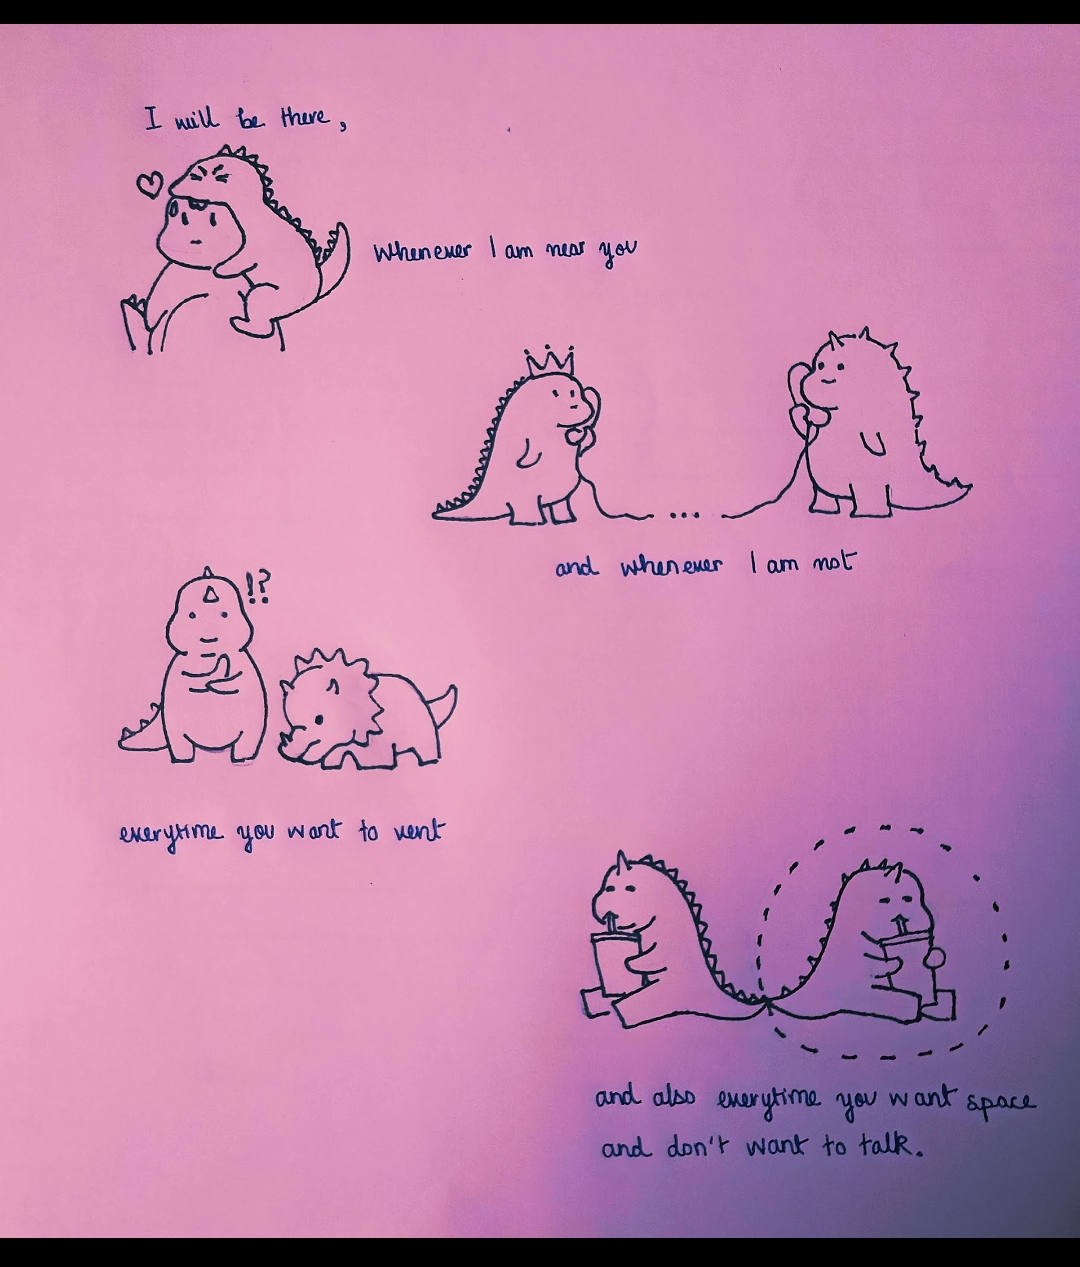 I will be there,
Whenever I am near you
and whenever I am not
!?
everytime you want to vent
and also everytime you want space
and don't want to talk.